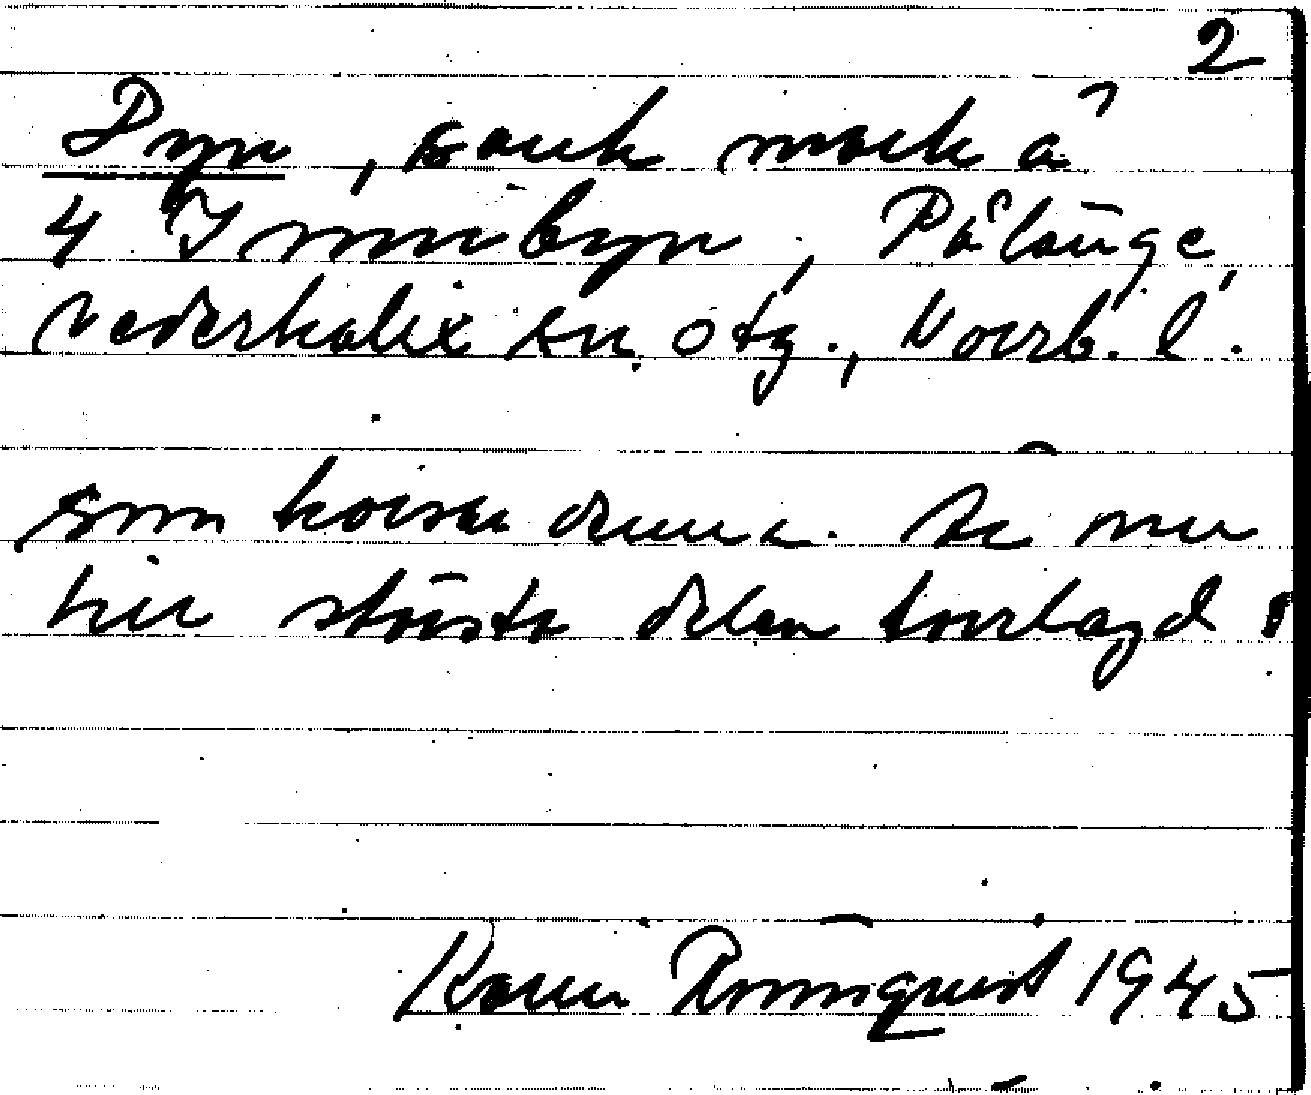 2
Dyn, sank mark å
4 Innibyn, Pålänge,
Nederkalix sn. otg., Norrb. l.
som korsar denna. Är nu
till största delen torrlagd.
Karin Rönnquist 1945